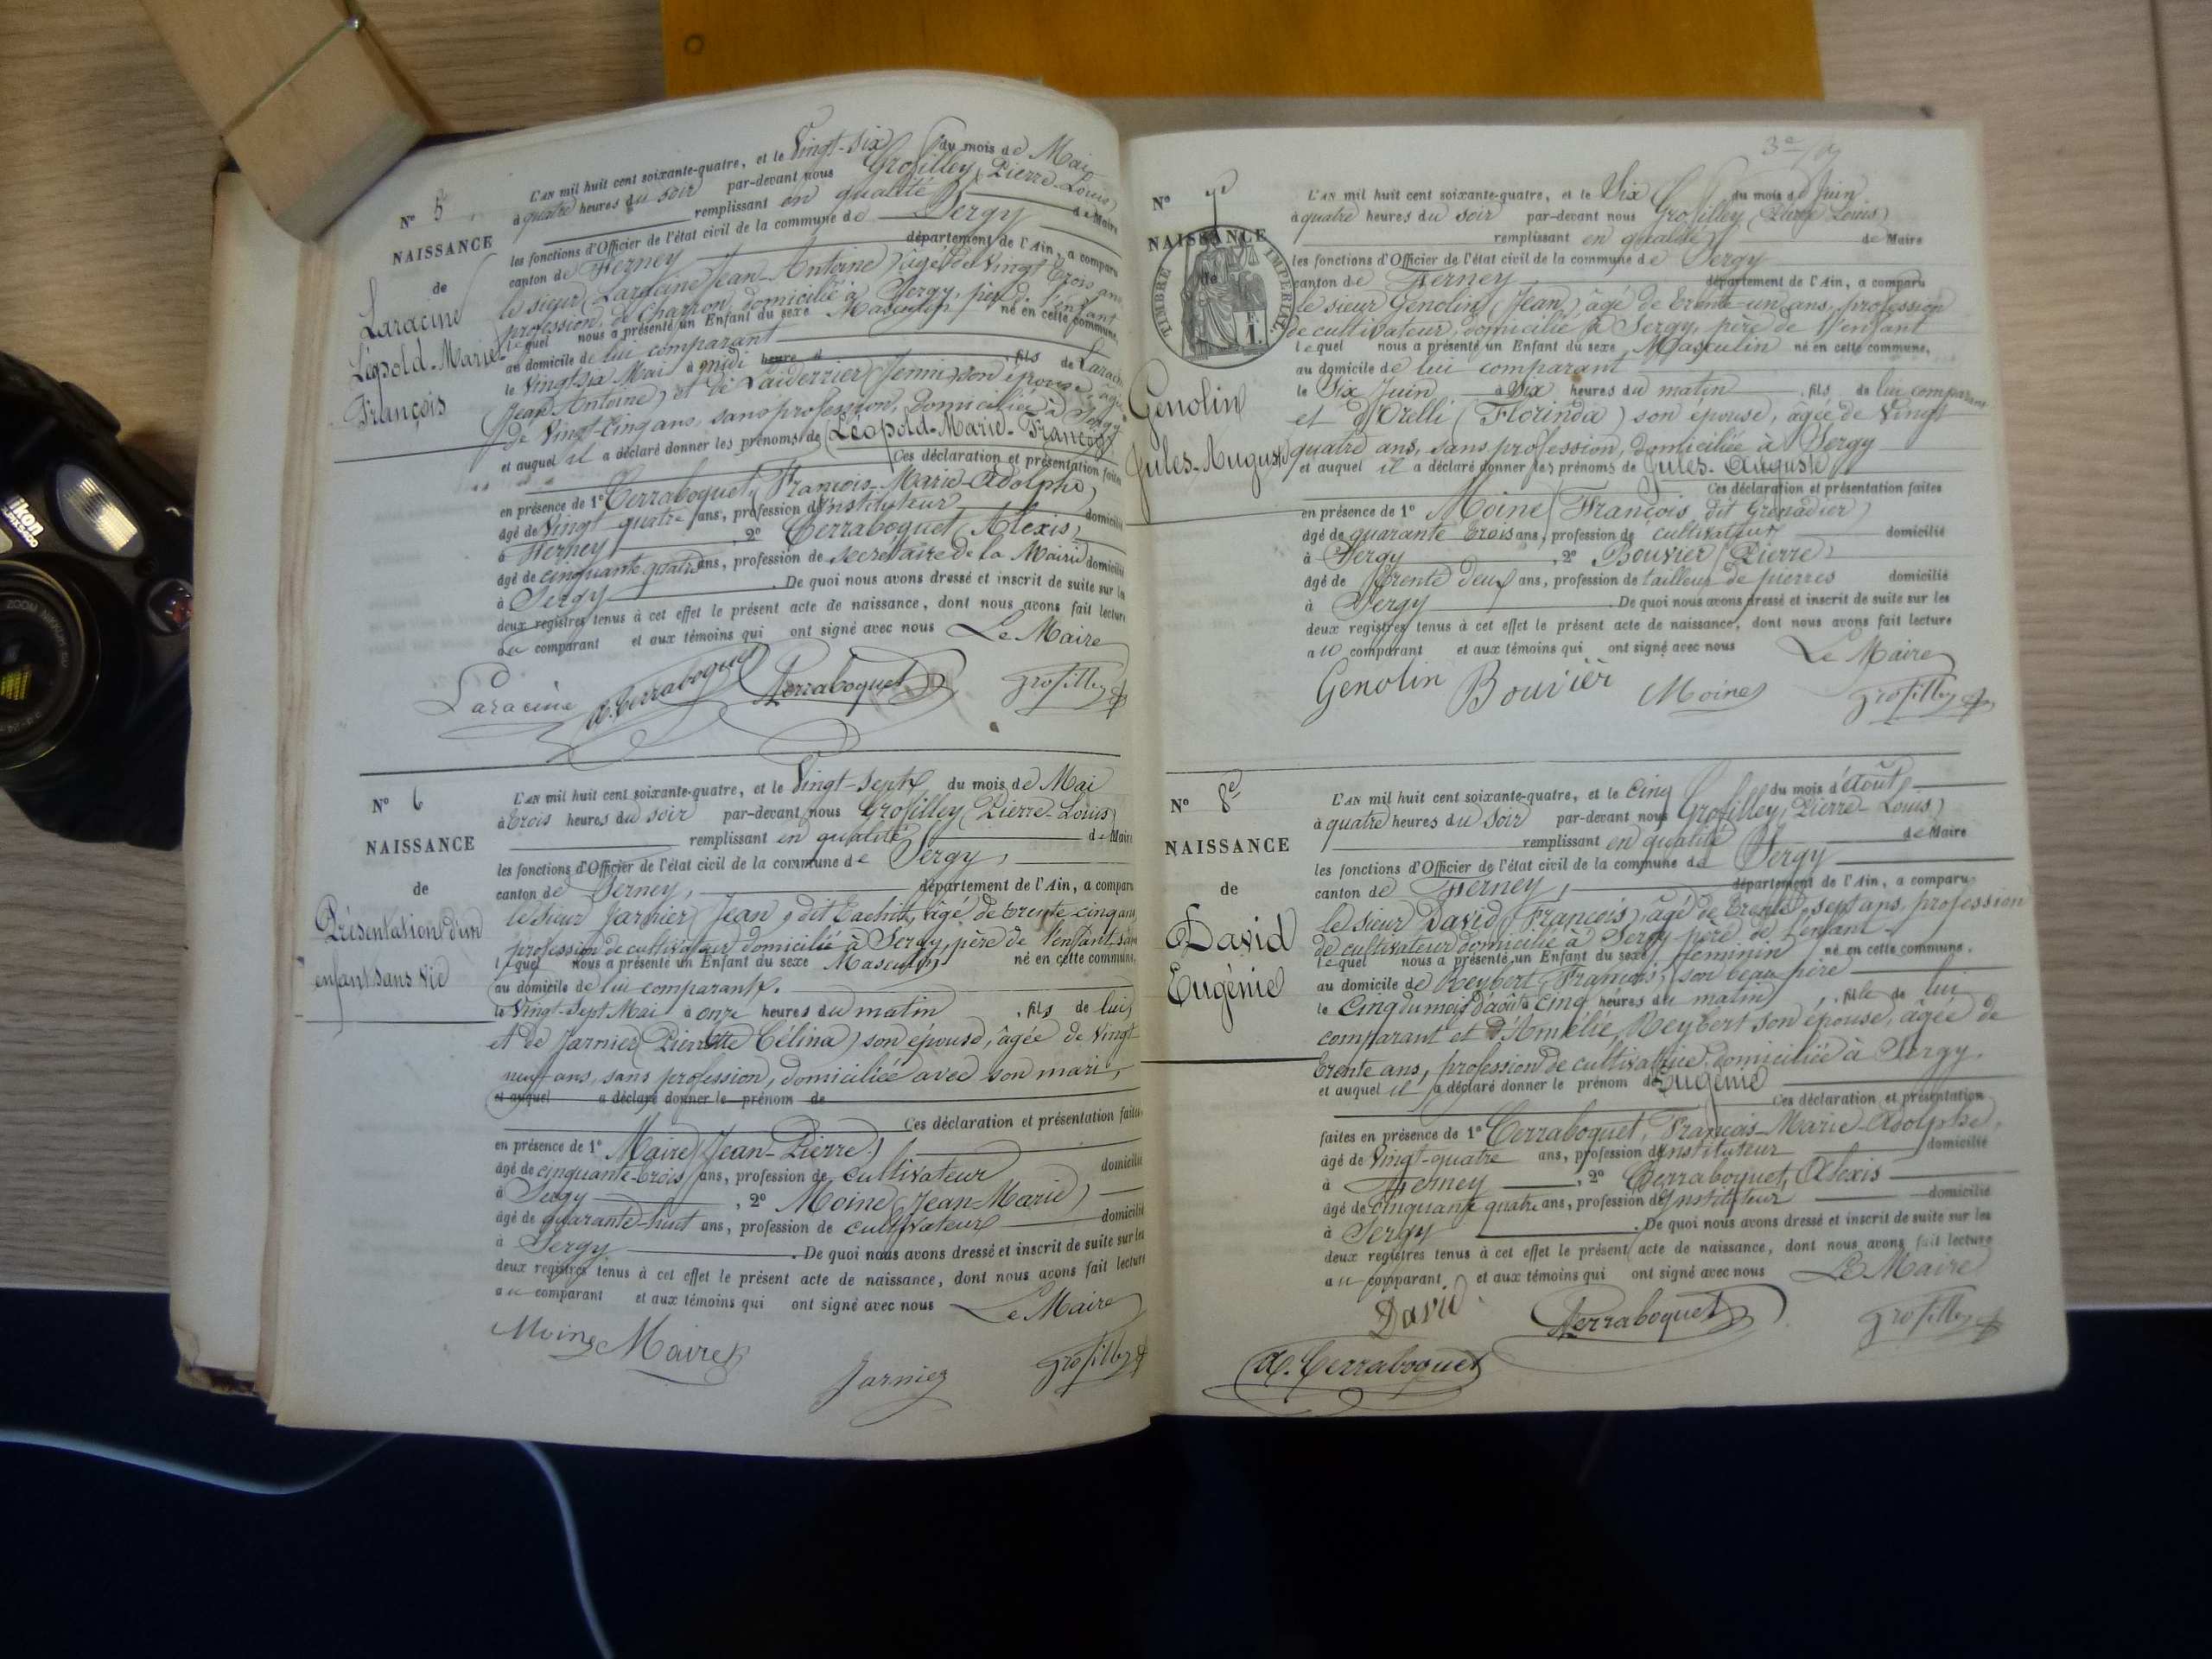 N° 5e
NAISSANCE
de
Laracine
Léopold-Marie-
François
L'AN mil huit cent soixante-quatre, et le Vingt-six du mois de Mai
à quatre heures du soir par-devant nous Grosilley (Pierre-Louis)
remplissant en qualité de Maire
les fonctions d'Officier de l'état civil de la commune de Sergy
canton de Ferney département de l'Ain, a comparu
le sieur Laracine (Jean-Antoine) âgé de Vingt trois ans
profession de Charron, domicilié à Sergy, père de l'enfant
lequel nous a présenté un Enfant du sexe Masculin né en cette commune,
au domicile de lui comparant
le Vingt six Mai à midi heure d fils de Laracine
(Jean-Antoine) et de Laiderrier (Jenni) son épouse, âgée
de Vingt-Cinq ans, sans profession, domiciliée à Sergy
et auquel il a déclaré donner les prénoms de (Léopold-Marie-François)
Ces déclaration et présentation faites
en présence de 1° Terraboquet, François-Marie-Adolphe,
âgé de Vingt quatre ans, profession d'instituteur domicilié
à Ferney, 2° Terraboquet (Alexis)
âgé de cinquante quatre ans, profession de secrétaire de la Mairie domicilié
à Sergy. De quoi nous avons dressé et inscrit de suite sur les
deux registres tenus à cet effet le présent acte de naissance, dont nous avons fait lecture
au comparant et aux témoins qui ont signé avec nous Le Maire
Laracine A. Terraboquet Terraboquet Grosilley
N° 6
NAISSANCE
de
Présentation d'un
enfant sans vie
L'AN mil huit cent soixante-quatre, et le Vingt-sept du mois de Mai
à trois heures du soir par-devant nous Grosilley (Pierre-Louis)
remplissant en qualité de Maire
les fonctions d'Officier de l'état civil de la commune de Sergy,
canton de Ferney, département de l'Ain, a comparu
le sieur Jarnier Jean, dit âgé de trente-cinq ans,
profession de cultivateur domicilié à Sergy, père de l'enfant
lequel nous a présenté un Enfant du sexe Masculin né en cette commune,
au domicile de lui comparant.
le Vingt-sept Mai à onze heures du matin, fils de lui,
et de Jarnier (Pierrette Célina) son épouse, âgée de Vingt
neuf ans, sans profession, domiciliée avec son mari,
et auquel a déclaré donner le prénom de
Ces déclaration et présentation faites
en présence de 1° Maire (Jean-Pierre)
âgé de cinquante-trois ans, profession de cultivateur domicilié
à Sergy, 2° Moine (Jean-Marie)
âgé de quarante-huit ans, profession de cultivateur domicilié
à Sergy. De quoi nous avons dressé et inscrit de suite sur les
deux registres tenus à cet effet le présent acte de naissance, dont nous avons fait lecture
au comparant et aux témoins qui ont signé avec nous Le Maire
Moine Maire Jarnier Grosilley
N° 7
NAISSANCE
de
TIMBRE IMPÉRIAL
F. 1.
Genolin
Jules-Auguste
L'AN mil huit cent soixante-quatre, et le Six du mois de Juin
à quatre heures du soir par-devant nous Grosilley (Pierre Louis)
remplissant en qualité de Maire
les fonctions d'Officier de l'état civil de la commune de Sergy
canton de Ferney département de l'Ain, a comparu
le sieur Genolin (Jean) âgé de trente-un ans, profession
de cultivateur, domicilié à Sergy, père de l'enfant
lequel nous a présenté un Enfant du sexe Masculin né en cette commune,
au domicile de lui comparant
le Six Juin à Six heures du matin, fils de lui comparant
et d'Orelli (Florinda) son épouse, âgée de Vingt
quatre ans, sans profession, domiciliée à Sergy
et auquel il a déclaré donner les prénoms de Jules-Auguste
Ces déclaration et présentation faites
en présence de 1° Moine (François, dit Grenadier)
âgé de quarante trois ans, profession de cultivateur domicilié
à Sergy, 2° Bouvier (Pierre)
âgé de trente deux ans, profession de tailleur de pierres domicilié
à Sergy. De quoi nous avons dressé et inscrit de suite sur les
deux registres tenus à cet effet le présent acte de naissance, dont nous avons fait lecture
au comparant et aux témoins qui ont signé avec nous Le Maire
Genolin Bouvier Moine Grosilley
N° 8e
NAISSANCE
de
David
Eugénie
L'AN mil huit cent soixante-quatre, et le Cinq du mois d'août
à quatre heures du soir par-devant nous Grosilley (Pierre-Louis)
remplissant en qualité de Maire
les fonctions d'Officier de l'état civil de la commune de Sergy
canton de Ferney, département de l'Ain, a comparu
le sieur David (François), âgé de trente sept ans, profession
de cultivateur domicilié à Sergy père de l'enfant
lequel nous a présenté un Enfant du sexe féminin né en cette commune,
au domicile de Reybert, François, son beau père
le Cinq du mois d'août à Cinq heures du matin, fille de lui
comparant et d'Amélie Reybert son épouse, âgée de
trente ans, profession de cultivatrice, domiciliée à Sergy,
et auquel il a déclaré donner le prénom de Eugénie
Ces déclaration et présentation
faites en présence de 1° Terraboquet, François-Marie-Adolphe,
âgé de Vingt-quatre ans, profession d'instituteur domicilié
à Ferney, 2° Terraboquet, Alexis
âgé de cinquante quatre ans, profession d'Instituteur domicilié
à Sergy. De quoi nous avons dressé et inscrit de suite sur les
deux registres tenus à cet effet le présent acte de naissance, dont nous avons fait lecture
au comparant et aux témoins qui ont signé avec nous Le Maire
David Terraboquet Grosilley
A. Terraboquet
Nikon
ZOOM NIKKOR